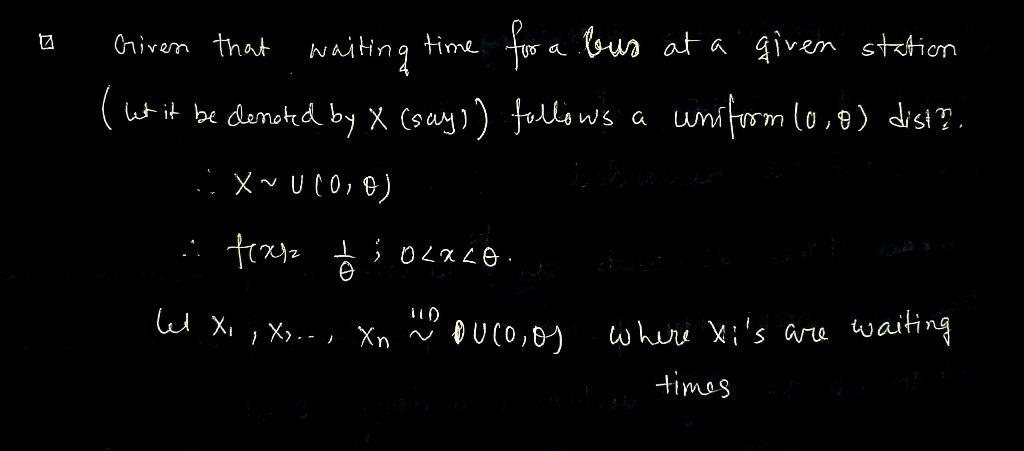 Given that waiting time for a bus at a given station
(let it be denoted by X (say)) follows a uniform (0, θ) distⁿ.
∴ X ~ U(0, θ)
∴ f(x) = 1/θ ; 0 < x < θ.
Let X₁, X₂..., Xn ~ IID U(0, θ) where Xi's are waiting
times